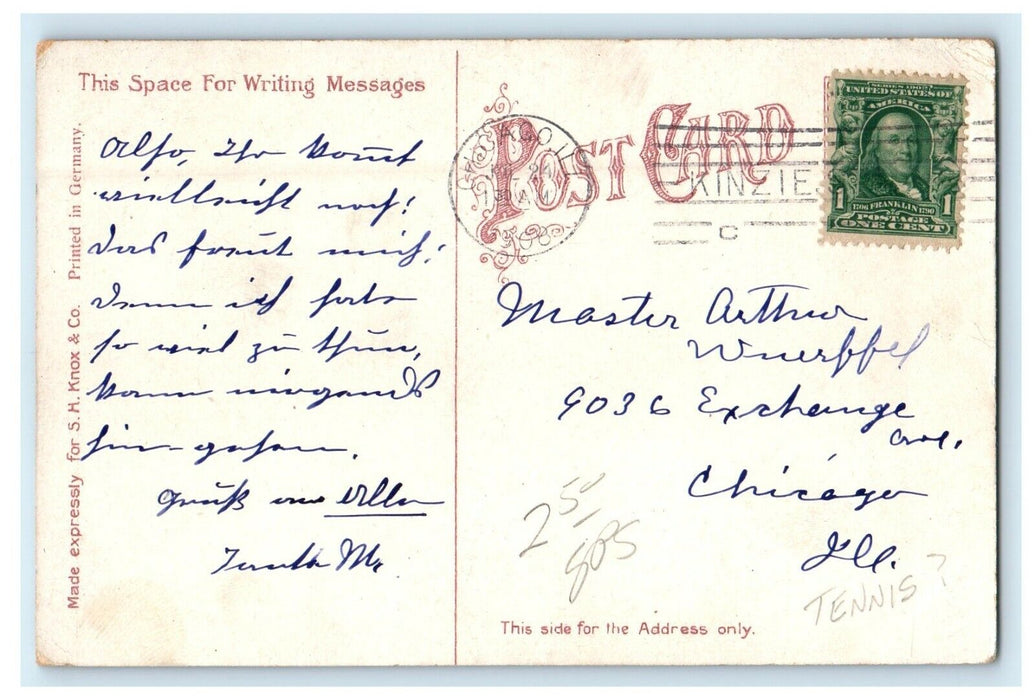 This Space For Writing Messages
Also, Ihr kommt
vielleicht noch!
Das freut mich!
Denn ich habe
so viel zu thun,
kann nirgends
hin-gehen.
Gruß an Alle
Tante M.
Made expressly for S. H. Knox & Co. Printed in Germany.
POST CARD
CHICAGO, ILL.
KINZIE
C
SERIES 1902
UNITED STATES OF
AMERICA
1 1706 FRANKLIN 1790 1
POSTAGE
ONE CENT
Master Arthur
Wuerffel
9036 Exchange
Ave.
Chicago
Ill.
2 50/
SPS
TENNIS?
This side for the Address only.